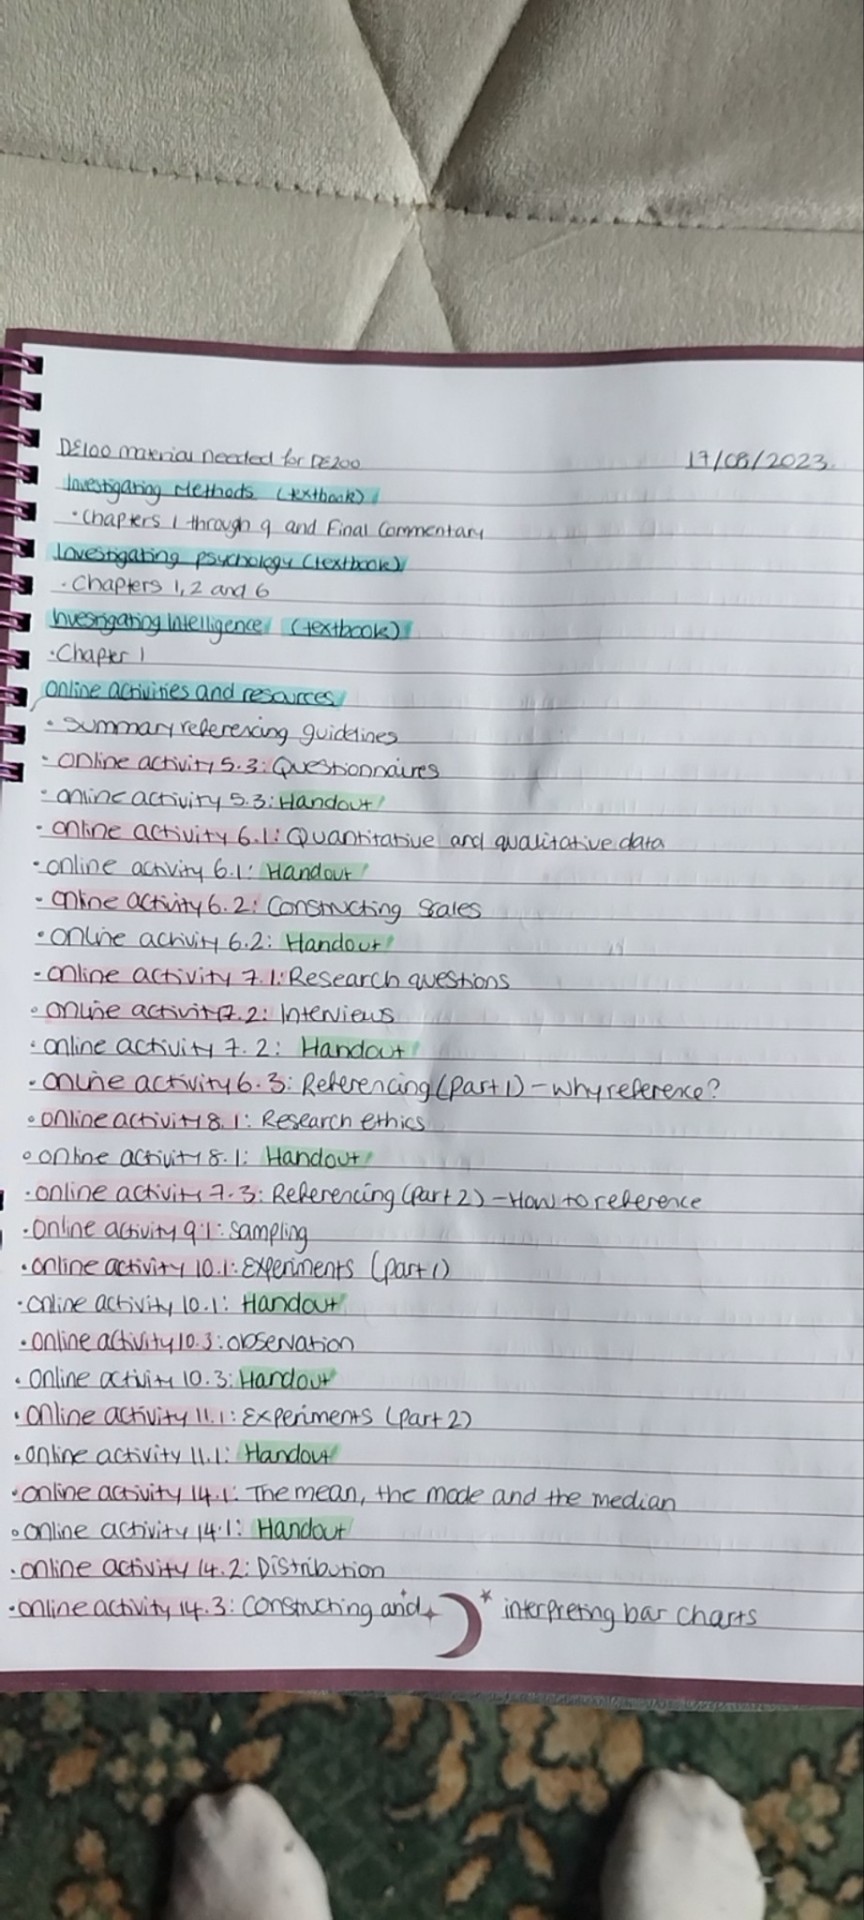 DE100 material needed for DE200 17/08/2023
Investigating Methods (textbook)
• Chapters 1 through 9 and Final Commentary
Investigating psychology (textbook)
• Chapters 1, 2 and 6
Investigating Intelligence (textbook)
• Chapter 1
Online activities and resources
• Summary referencing guidelines
• Online activity 5.3: Questionnaires
• online activity 5.3: Handout
• online activity 6.1: Quantitative and qualitative data
• online activity 6.1: Handout
• Online activity 6.2: Constructing Scales
• Online activity 6.2: Handout
• online activity 7.1: Research questions
• online activity 7.2: Interviews
• online activity 7.2: Handout
• online activity 6.3: Referencing (part 1) – why reference?
• online activity 8.1: Research ethics
• online activity 8.1: Handout
• online activity 7.3: Referencing (part 2) – How to reference
• Online activity 9.1: Sampling
• online activity 10.1: Experiments (part 1)
• online activity 10.1: Handout
• online activity 10.3: observation
• Online activity 10.3: Handout
• online activity 11.1: Experiments (part 2)
• online activity 11.1: Handout
• online activity 14.1: The mean, the mode and the median
• online activity 14.1: Handout
• online activity 14.2: Distribution
• online activity 14.3: Constructing and interpreting bar charts